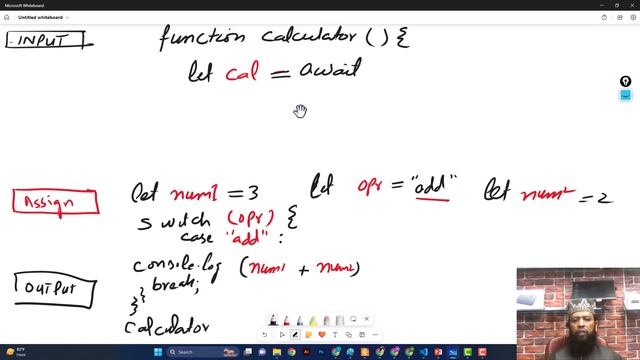 Microsoft Whiteboard
Untitled whiteboard
INPUT
function calculator () {
let cal = await
Assign
let num1 = 3
let opr = "add"
let num2 = 2
switch (opr) {
case "add" :
OUTPUT
console.log (num1 + num2)
break;
}
}
calculator
82°F
Haze
Search